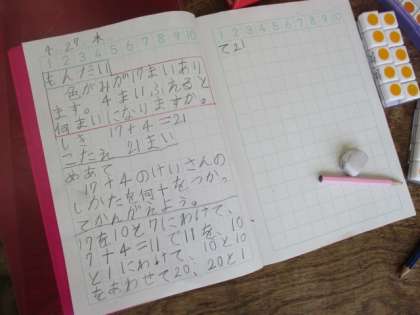 4 27 木
1 2 3 4 5 6 7 8 9 10
もんだい
色がみが17まいあり
ます。4まいふえると
何まいになりますか。
しき 17+4=21
こたえ 21まい
めあて
17+4のけいさんの
しかたを何十をつかっ
てかんがえよう。
17を10と7にわけて、
7+4=11で11を、10
と1にわけて、10と10
をあわせて20、20と1
1 2 3 4 5 6 7 8 9 10
で21